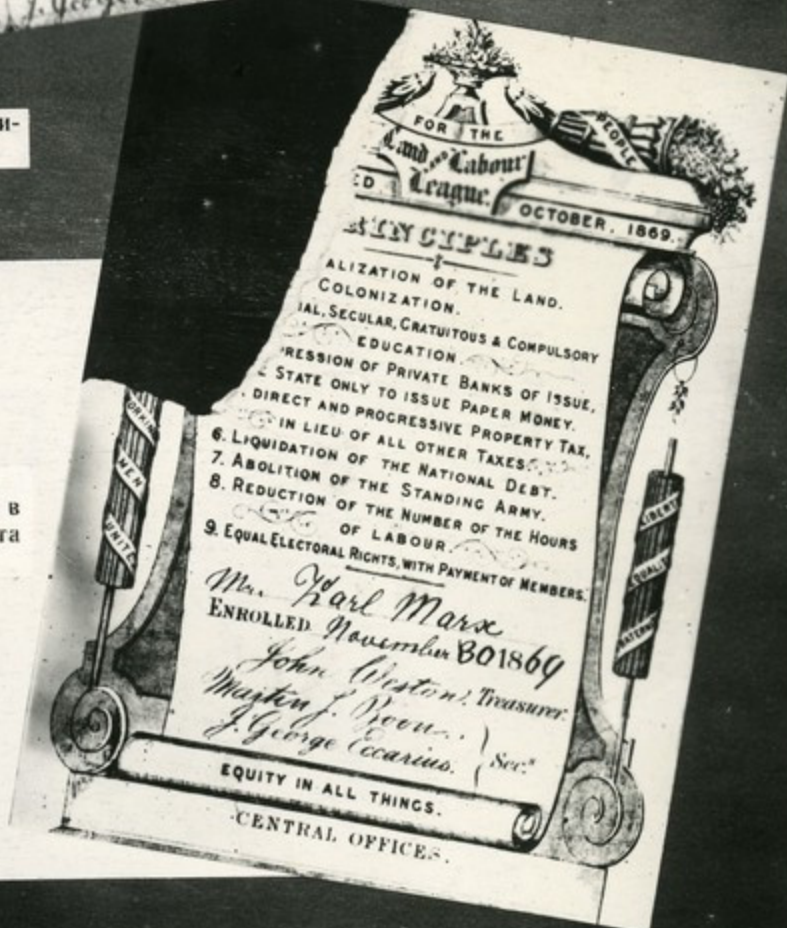 J. George
и-
в
та
FOR THE
PEOPLE
Land and Labour
League.
ED OCTOBER, 1869.
RINCIPLES
ALIZATION OF THE LAND.
COLONIZATION.
IAL, SECULAR, GRATUITOUS & COMPULSORY
EDUCATION.
RESSION OF PRIVATE BANKS OF ISSUE,
STATE ONLY TO ISSUE PAPER MONEY.
DIRECT AND PROGRESSIVE PROPERTY TAX,
IN LIEU OF ALL OTHER TAXES.
6. LIQUIDATION OF THE NATIONAL DEBT.
7. ABOLITION OF THE STANDING ARMY.
8. REDUCTION OF THE NUMBER OF THE HOURS
OF LABOUR.
9. EQUAL ELECTORAL RIGHTS, WITH PAYMENT OF MEMBERS.
Mr. Karl Marx
ENROLLED November 30 1869
John Weston. Treasurer.
Martin J. Boon.
J. George Eccarius. } Secs
EQUITY IN ALL THINGS.
CENTRAL OFFICES.
ORKING
MEN
UNITE
LIBERTY
EQUALITY
FRATERNITY